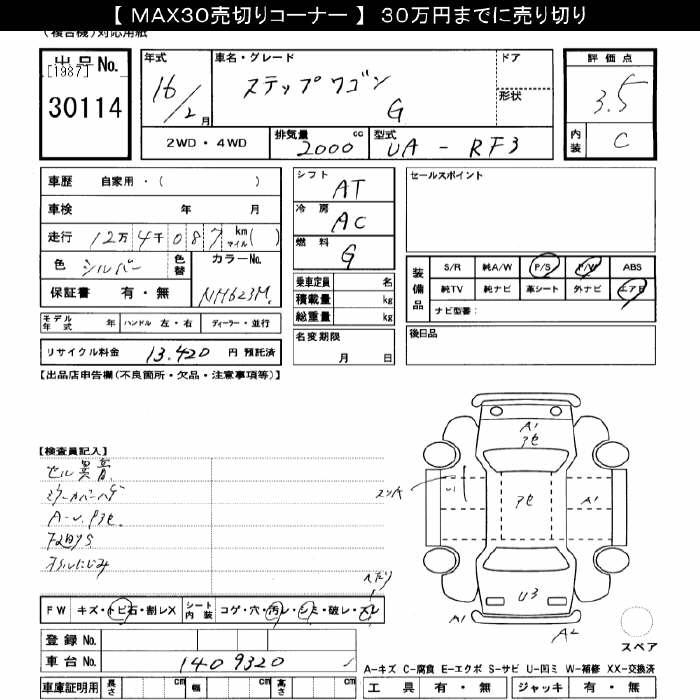 【 MAX30売切りコーナー 】 30万円までに売り切り
(複合機)対応用紙
出品No.
[1987]
30114
年式
16/2月
車名・グレード
ステップワゴン
G
ドア
形状
評価点
3.5
内装
C
2WD・4WD
排気量
2000 cc
型式
UA - RF3
車歴 自家用・( )
車検 年 月
走行 12万 4千 0 8 7 km マイル( )
色 シルバー 色替
カラーNo.
NH623M
保証書 有・無
モデル年式 年 ハンドル 左・右 ディーラー・並行
リサイクル料金 13,420 円 預託済
シフト
AT
冷房
AC
燃料
G
乗車定員 名
積載量 kg
総重量 kg
名変期限
月 日
セールスポイント
装備品
S/R 純A/W P/S P/W ABS
純TV 純ナビ 革シート 外ナビ エアB
ナビ型番:
後日品
【出品店申告欄(不良箇所・欠品・注意事項等)】
【検査員記入】
セル異音
ミラーカバーハゲ
オイルにじみ
ヘタリ
A1
アセ
アセ
A1
U3
A1
A2
スペア
FW キズ・トビ石・割レX
シート内装 コゲ・穴・汚レ・シミ・破レ・スレ
登録No.
車台No. 1409320
車庫証明用 長さ cm 幅 cm 高さ cm
A-キズ C-腐食 E-エクボ S-サビ U-凹ミ W-補修 XX-交換済
工具 有・無 ジャッキ 有・無